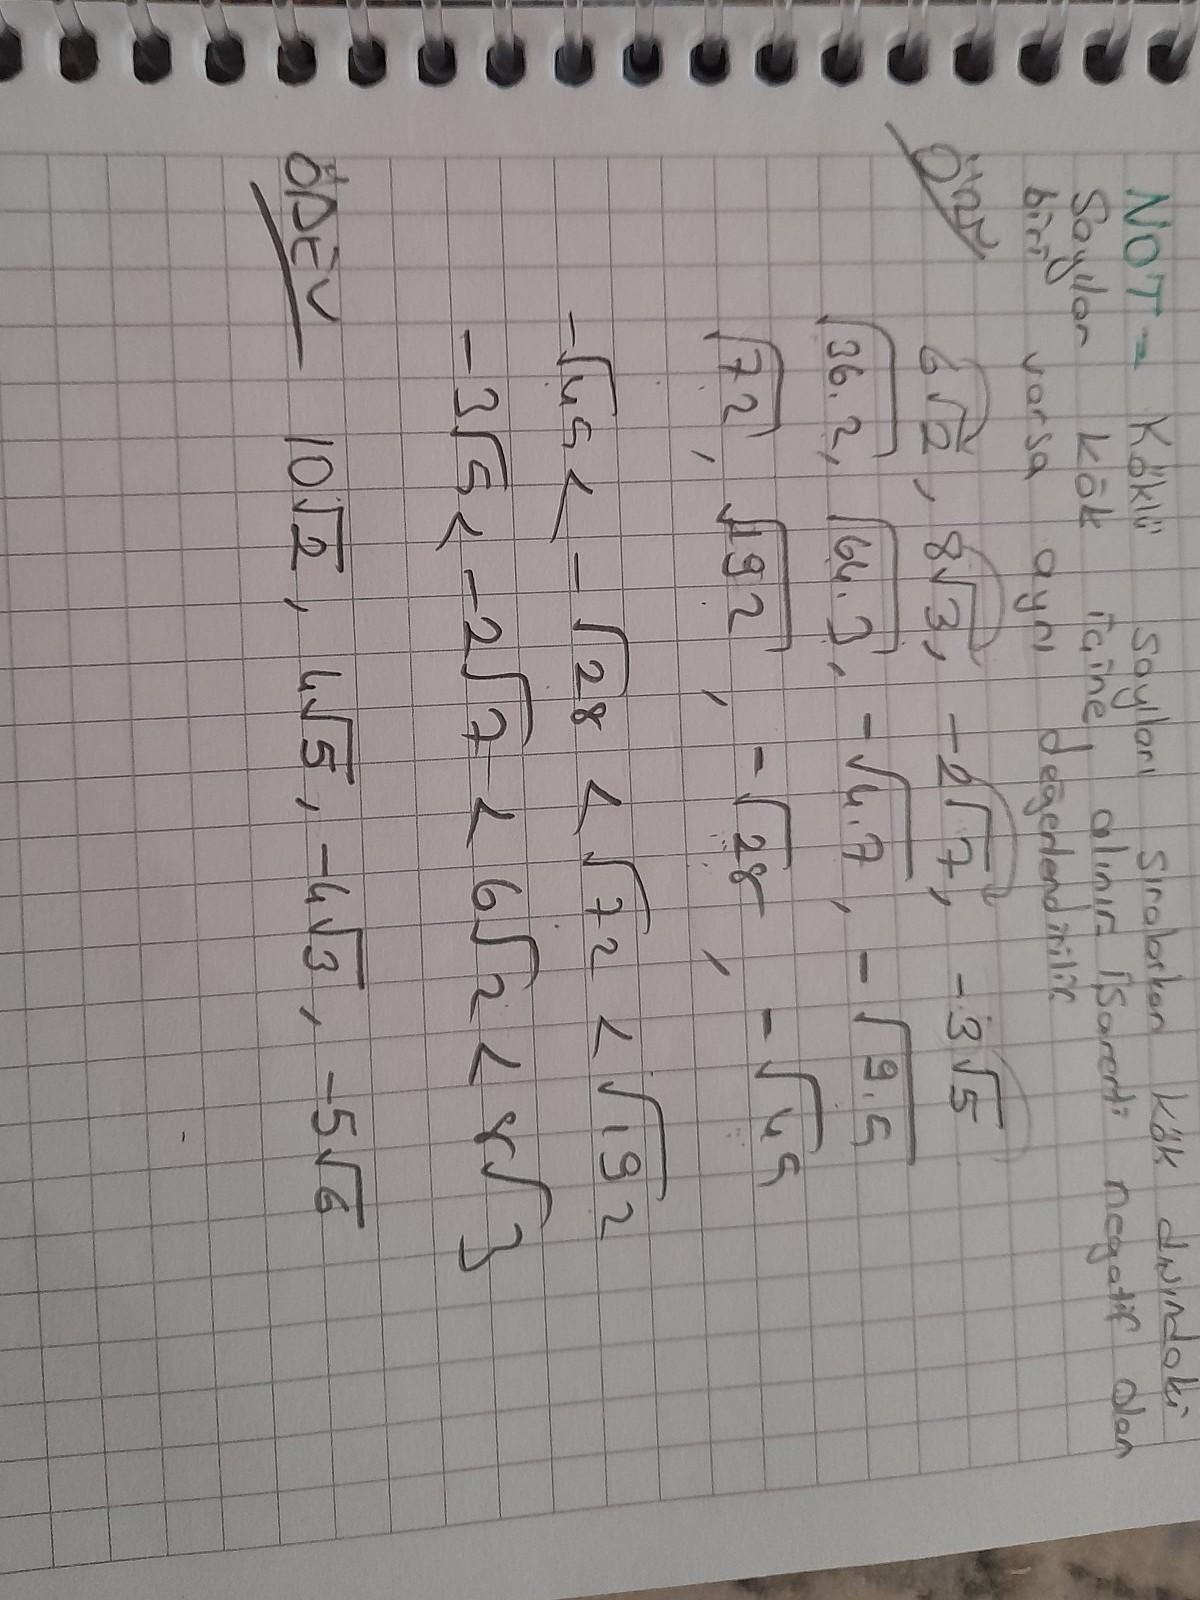 NOT → Köklü Sayıları Sıralarken kök dışındaki
Sayılar kök içine alınır işareti negatif olan
biri varsa ayrı değerlendirilir
Örn
6√2, 8√3, -2√7, -3√5
√36.2, √64.3, -√4.7, -√9.5
√72, √192, -√28, -√45
-√45 < -√28 < √72 < √192
-3√5 < -2√7 < 6√2 < 8√3
ÖDEV 10√2, 4√5, -4√3, -5√6